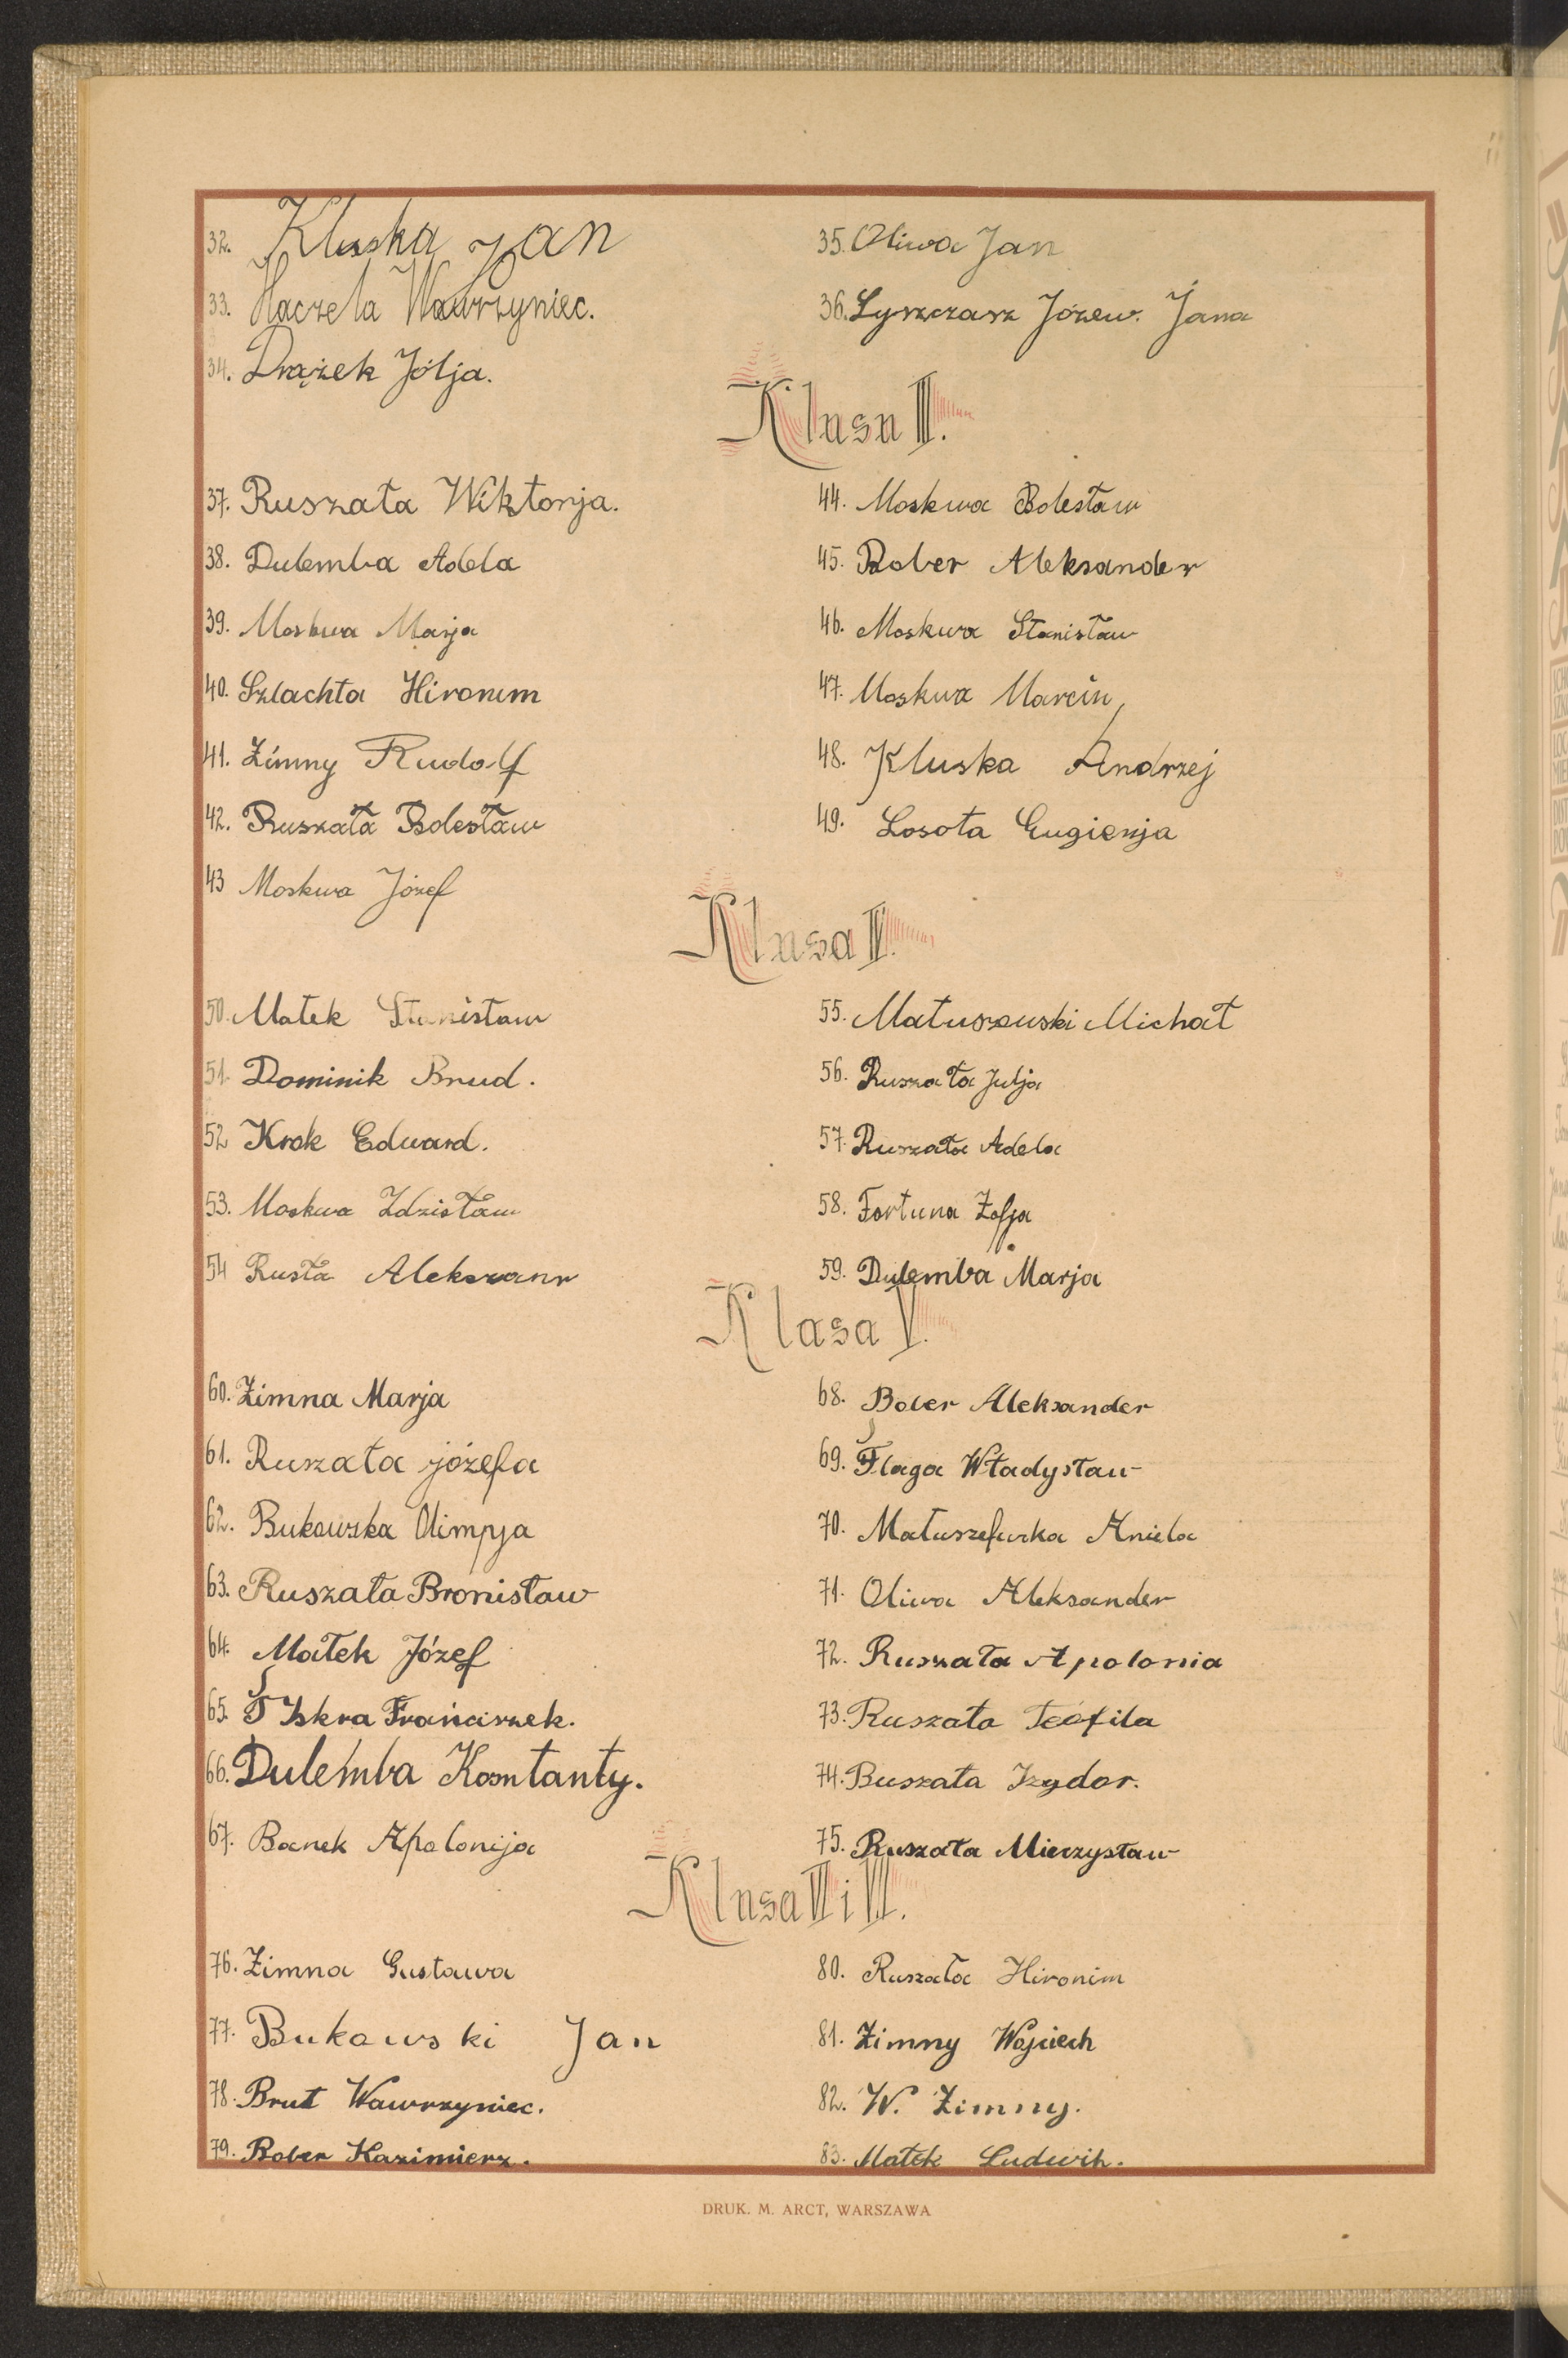 32. Kluska Jan
33. Haczela Wawrzyniec.
34. Drążek Jólja.
35. Oliwa Jan
36. Łyszczasz Józew. Jana
Klasa III.
37. Ruszała Wiktorja.
38. Dulemba Adela
39. Moskwa Marja
40. Szlachta Hironim
41. Zimny Rudolf
42. Ruszała Bolesław
43 Moskwa Józef
44. Moskwa Bolesław
45. Bober Aleksander
46. Moskwa Stanisław
47. Moskwa Marcin
48. Kluska Andrzej
49. Losota Eugienja
Klasa IV.
50. Małek Stanisław
51. Dominik Brud.
52 Krok Edward.
53. Moskwa Zdzisław
54 Rusła
55. Matuszewski Michał
56. Ruszała Julja
57. Ruszała Adela
58. Fortuna Zofja
59. Dulemba Marja
Klasa V.
60. Zimna Marja
61. Ruszała józefa
62. Bukowska Olimpja
63. Ruszała Bronisław
64. Małek Józef
65. Iskra Franciszek.
66. Dulemba Komtanty.
67. Banek Apolonija
68. Bober Aleksander
69. Flaga Władysław
70. Matuszefwska Aniela
71. Oliwa Aleksander
72. Ruszała Apolonia
73. Ruszała Teofila
74. Ruszała Izydor.
75. Ruszała Mieczysław
Klasa VI i VII.
76. Zimna Gustawa
77. Bukowski Jan
78. Brut Wawrzyniec.
79. Bober Kazimierz.
80. Ruszała Hironim
81. Zimny Wojciech
82. W. Zimny.
83. Małek Ludwik.
DRUK. M. ARCT, WARSZAWA